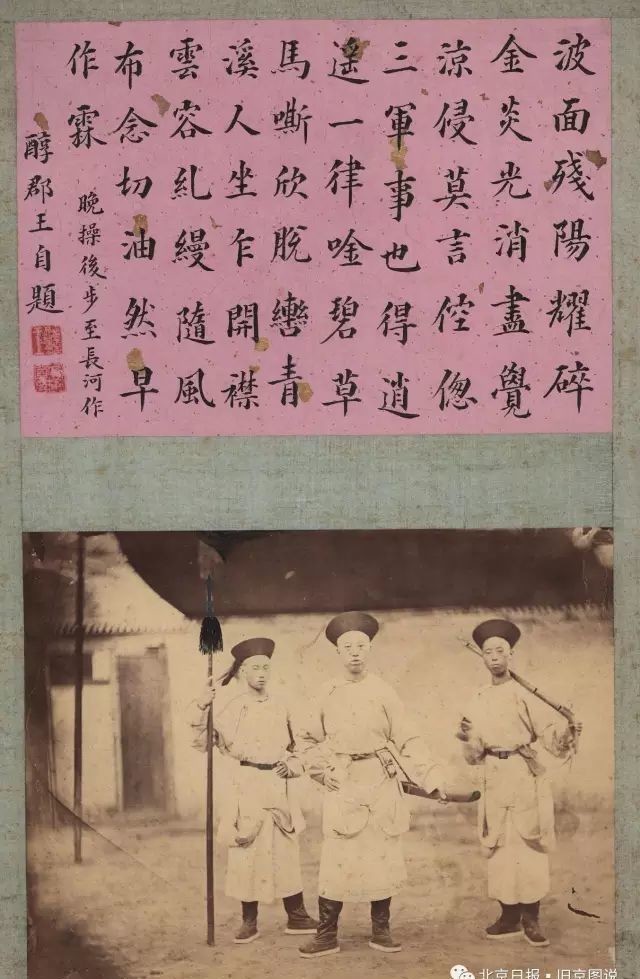 波面殘陽耀碎
金炎光消盡覺
涼侵莫言倥偬
三軍事也得逍
遙一律唫碧草
馬嘶欣脫轡青
溪人坐乍開襟
雲容糺縵隨風
布念切油然早
作霖
晚操後步至長河作
醇郡王自題
北京日报·旧京图说